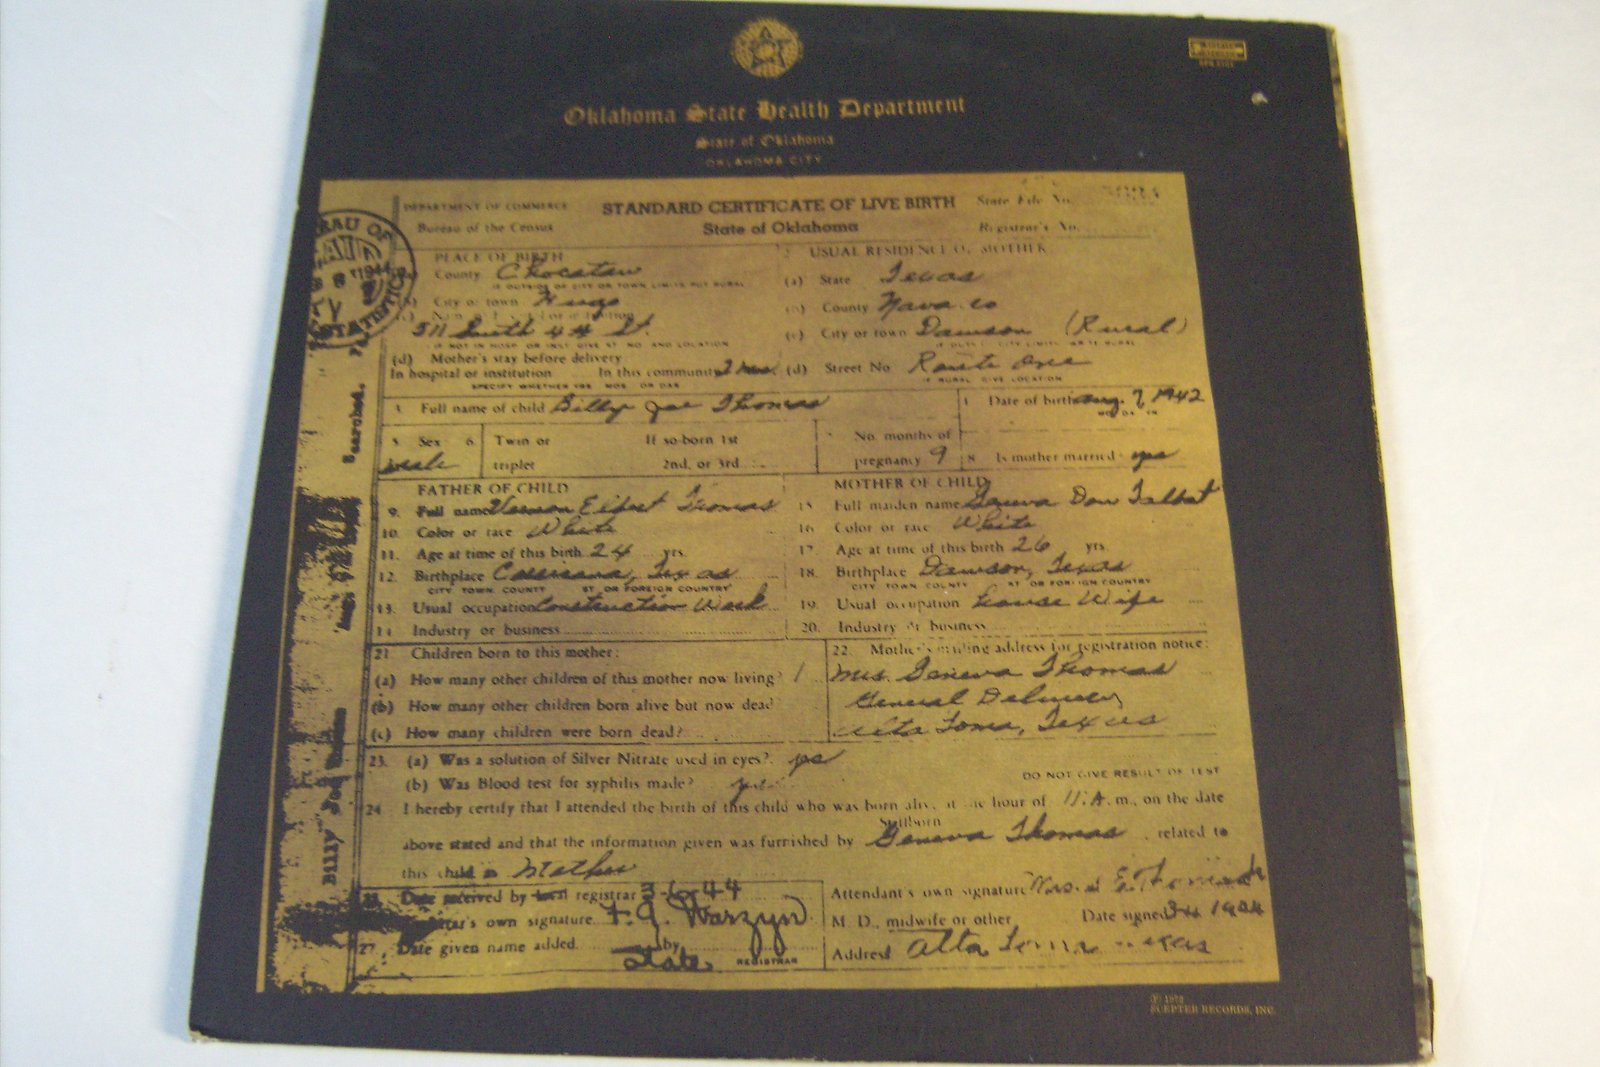 SCEPTER RECORDS
Oklahoma State Health Department
State of Oklahoma
OKLAHOMA CITY
DEPARTMENT OF COMMERCE
Bureau of the Census
STANDARD CERTIFICATE OF LIVE BIRTH
State of Oklahoma
State File No.
Registrar's No.
BUREAU OF
STATISTICS
1944
PLACE OF BIRTH
County Choctaw
IF OUTSIDE OF CITY OR TOWN LIMITS PUT RURAL
City or town Hugo
511 South 4th St.
IF NOT IN HOSP OR INST GIVE ST NO AND LOCATION
(d) Mother's stay before delivery:
In hospital or institution In this community 2 mos.
SPECIFY WHETHER YRS MOS OR DAS
2 USUAL RESIDENCE OF MOTHER
(a) State Texas
(b) County Navarro
(c) City or town Dawson (Rural)
(d) Street No Route One
IF RURAL GIVE LOCATION
3 Full name of child Billy Joe Thomas
4 Date of birth Aug. 7, 1942
MO DA YR
5 Sex 6
male
Twin or
triplet
If so-born 1st
2nd, or 3rd
No. months of
pregnancy 9
8 Is mother married yes
FATHER OF CHILD
9. Full name Vernon Elbert Thomas
10. Color or race White
11. Age at time of this birth 24 yrs.
12. Birthplace Corsicana, Texas
CITY TOWN COUNTY ST OR FOREIGN COUNTRY
13. Usual occupation Construction Work
14 Industry or business
MOTHER OF CHILD
15 Full maiden name Geneva Dow Talbot
16 Color or race White
17. Age at time of this birth 26 yrs.
18. Birthplace Dawson, Texas
CITY TOWN COUNTY ST OR FOREIGN COUNTRY
19. Usual occupation House Wife
20. Industry or business
21. Children born to this mother:
(a) How many other children of this mother now living? 1
(b) How many other children born alive but now dead?
(c) How many children were born dead?
22. Mother's mailing address for registration notice:
Mrs. Geneva Thomas
General Delivery
Alta Loma, Texas
23. (a) Was a solution of Silver Nitrate used in eyes? yes
(b) Was Blood test for syphilis made? yes
DO NOT GIVE RESULT OF TEST
24. I hereby certify that I attended the birth of this child who was born alive at the hour of 11:A.m., on the date
Stillborn
above stated and that the information given was furnished by Geneva Thomas related to
this child as Mother
Date received by local registrar 3-6-44
own signature F. J. Warzyn
27. Date given name added by State
REGISTRAR
Attendant's own signature Mrs.
M. D., midwife or other Date signed
Address Alta Loma Texas
Searched.
Billy Joe Thomas
SCEPTER RECORDS, INC.